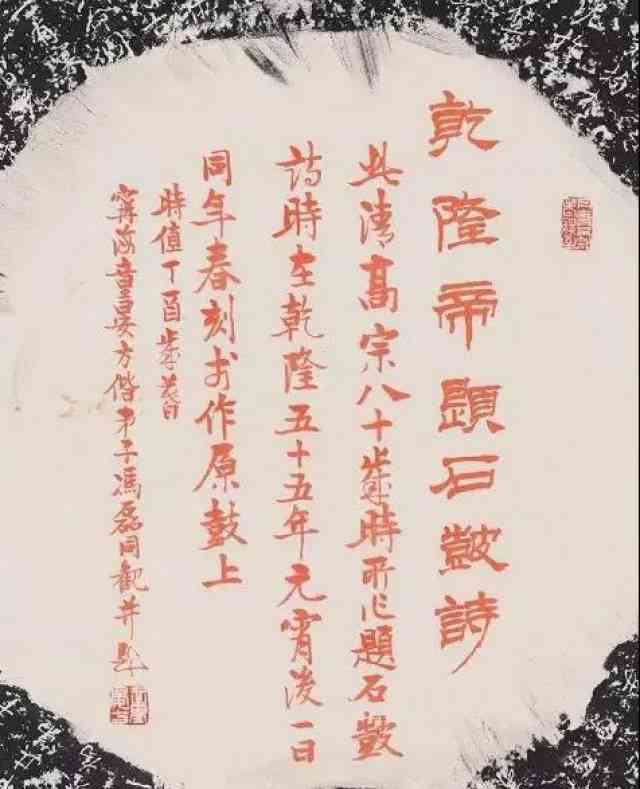 乾隆帝題石鼓詩
此清高宗八十歲時所作題石鼓
詩時在乾隆五十五年元宵後一日
同年春刻於作原鼓上
時值丁酉歲
寧海童晏方偕弟子馮磊同觀并題